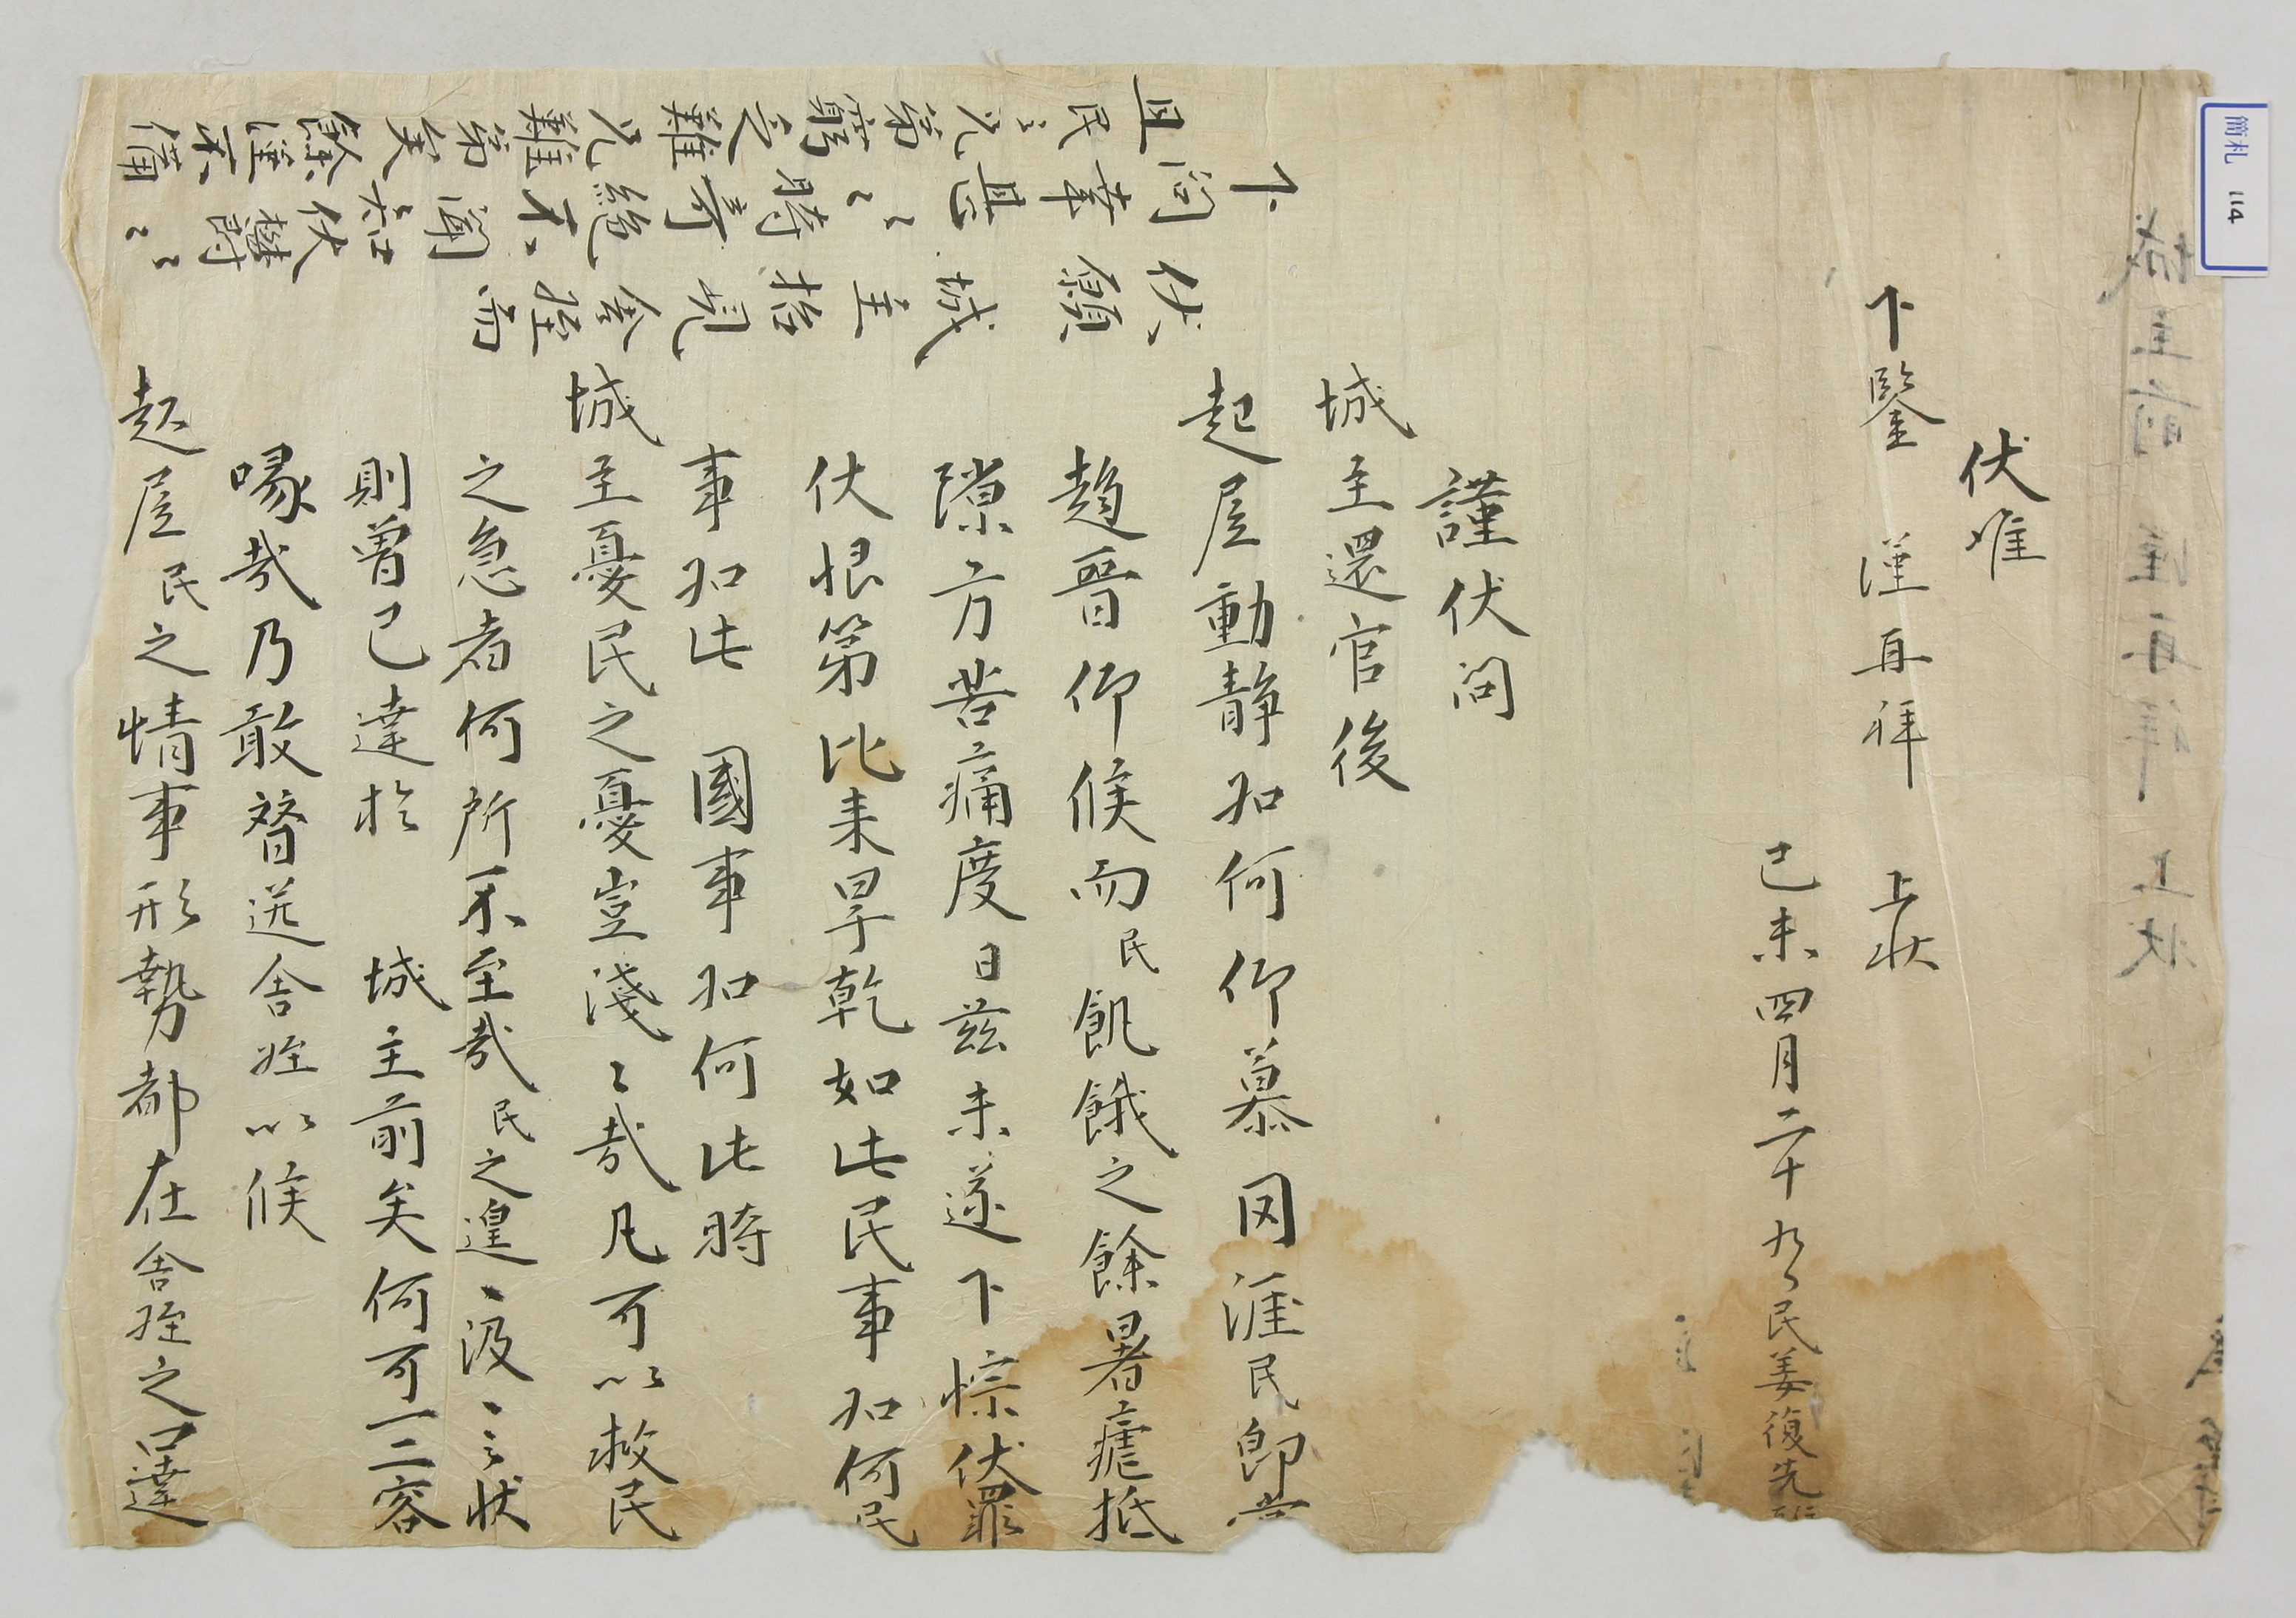 謹伏問
城主還官後
起居動靜如何仰慕罔涯民卽
趨晉仰候而民飢餓之餘暑瘧抵
隙方苦痛度日玆未遂下悰伏罪
伏恨第比来旱乾如此民事如何民
事如此 國事如何此時
城主憂民之憂豈淺〻哉凡可以救民
之急者何所不至哉民之遑〻汲〻之狀
則曾已達於 城主前矣何可一二容
喙哉乃敢替送舍姪以候
起居民之情事形勢都在舍姪之口達
伏願城主招見舍姪而
下問幸甚〻〻時奇絶不聞知伏鬱〻〻
且民之兄第窮交難兄難第矣餘謹不備
伏惟
下鑒 謹再拜 上狀
己未四月二十九日民姜復先
簡札 114